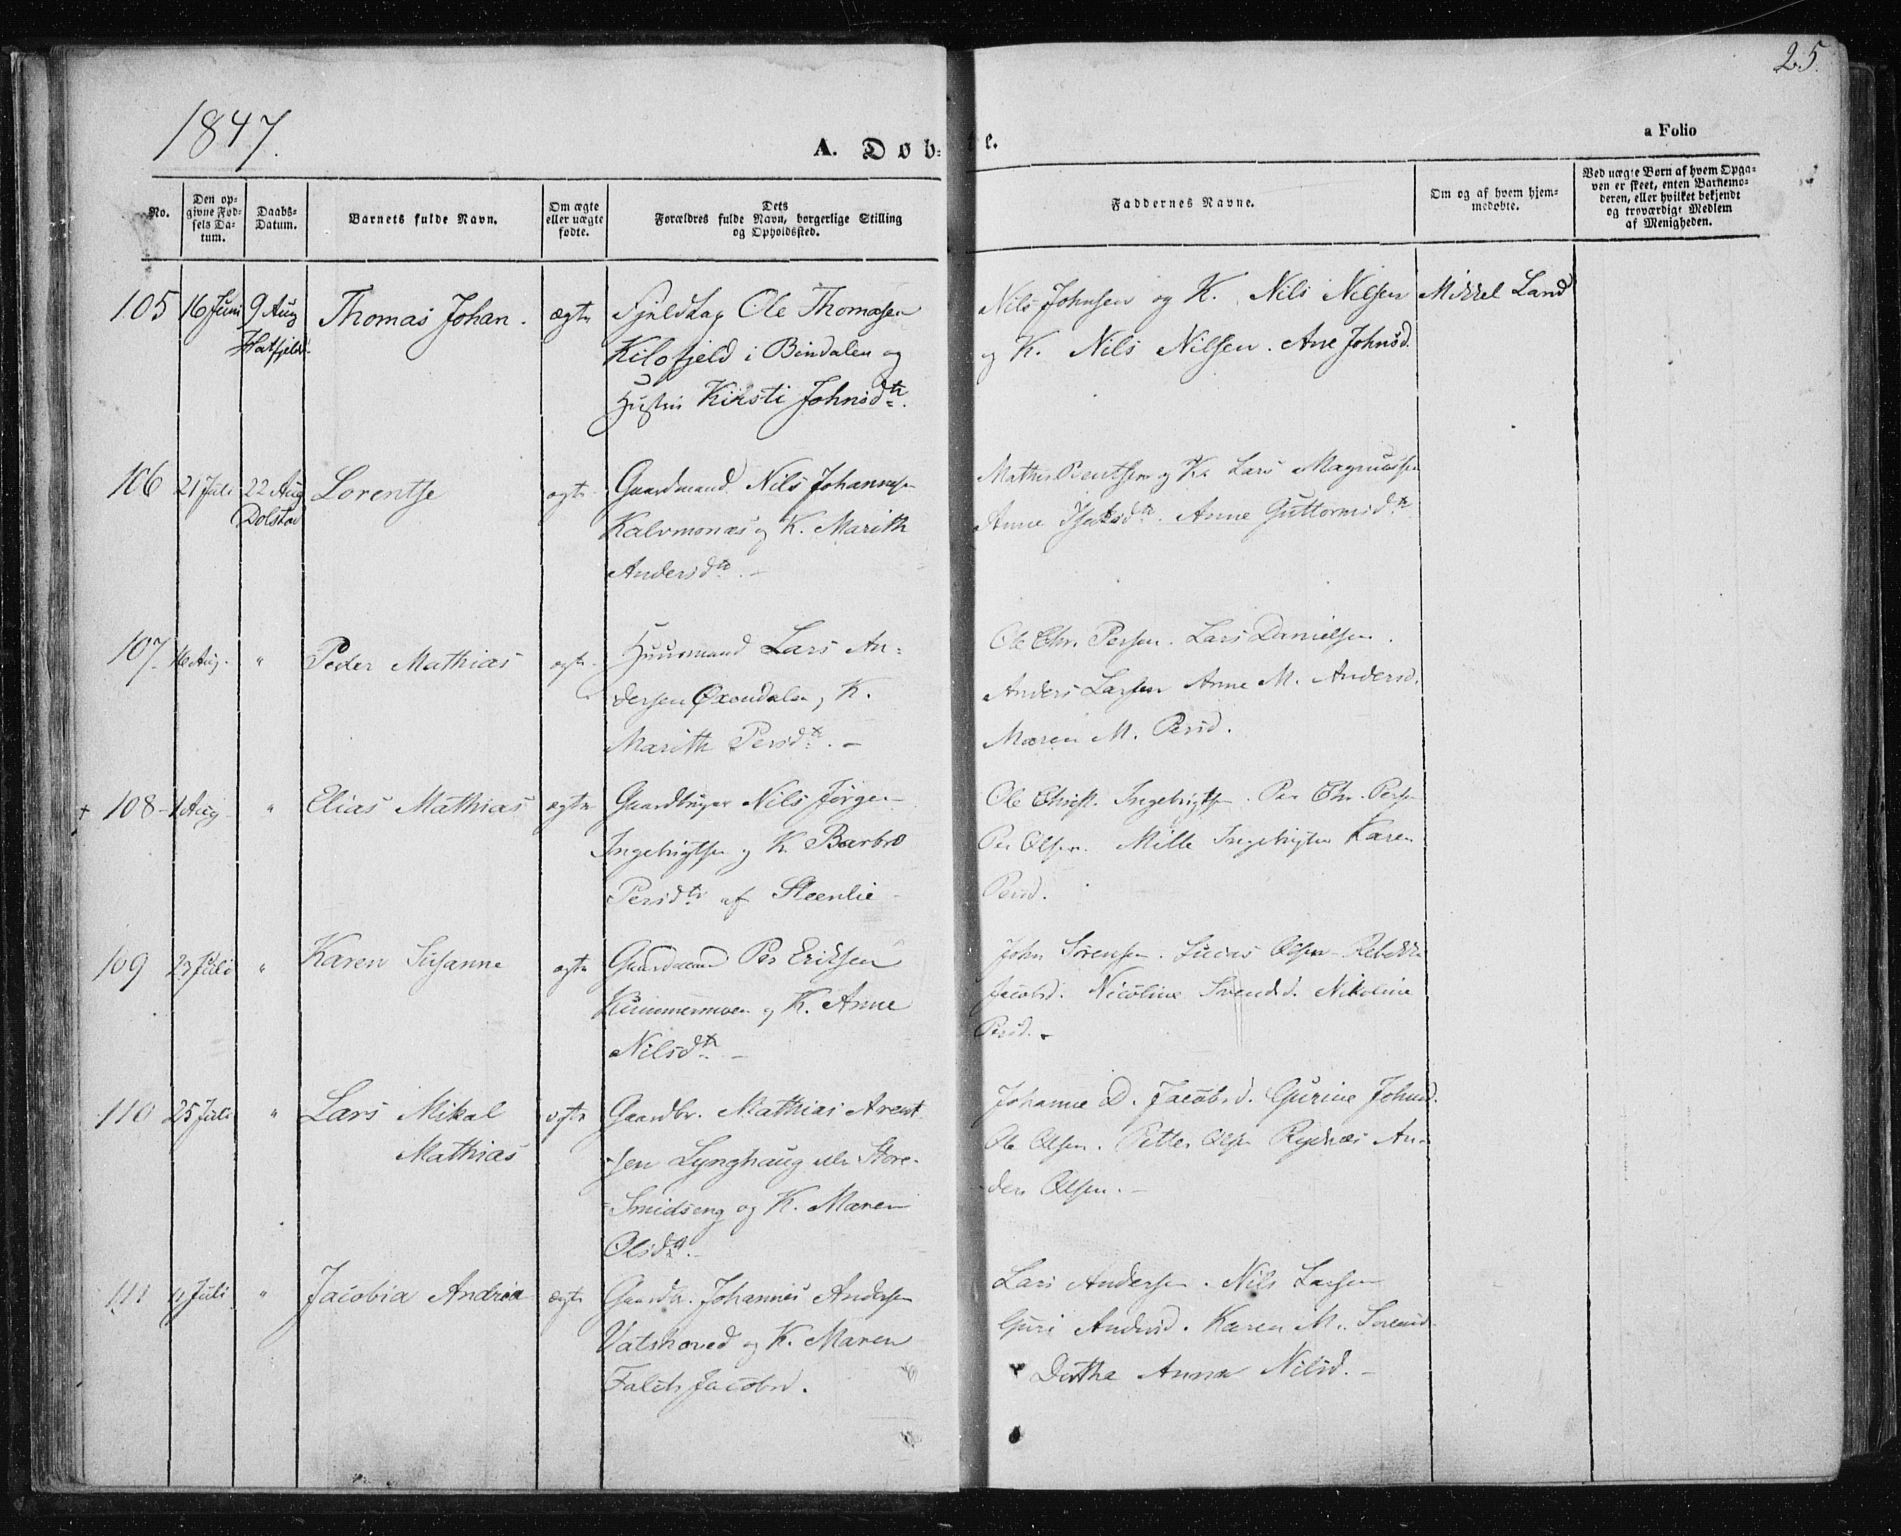 25.
1847.
A. Døb=
te.
a Folio
No.
Den op-
givne Fød-
sels Da-
tum.
Daabs-
Datum.
Barnets fulde Navn.
Om ægte
eller uægte
fødte.
Dets
Forældres fulde Navn, borgerlige Stilling
og Opholdssted.
Faddernes Navne.
Om og af hvem hjem-
medøbte.
Ved uægte Børn af hvem Opga-
ven er skeet, enten Barnemo-
deren, eller hvilket bekjendt
og troværdigt Medlem
af Menigheden.
105 16 Juni 9 Aug Thomas Johan. ægte Ole Thomæsen
Hatfjeld.
Kilsfjeld i Bindalen og
Hustru Kirsti Johnsdtr.
Nils Johnsen og K. Nils Nilsen Mikkel Land
og K. Nils Nilsen. Ane Johnsd.
106 21 Juli 22 Aug Lorentse ægte Gaardmand Nils Johannsen
Dolstad
Kalvmonæs og K. Marith
Andersdtr. -
Mathis Bentsen og K. Lars Magnussen
Anne Isaksdtr. Anne Guttormsdtr
107 16 Aug. " Peder Mathias ægte Huusmand Lars An-
dersen Øxendalen, K.
Marith Persdtr. -
Ole Chr. Persen. Lars Danielsen.
Anders Larsen Anne M. Andersd.
Maren M. Persd.
+ 108 - 1 Aug " Elias Mathias ægte Gaardbruger Nils Jørgen
Ingebrigtsen og K. Barbro
Persdtr af Steenlie -
Ole Christ. Ingebrigtsen. Per Chr. Persen
Per Olsen. Mille Ingebrigtsen Karen
Persd.
109 23 Juli " Karen Susanne ægte Gaardmand Per Eriksen
Kummermoen og K. Anne
Nilsdtr -
John Sørensen. Lucas Olsen Rebekka
Jacobsd. Nicoline Svendsd. Nikoline
Persd. -
110 25 Juli " Lars Mikal ægte Gaardbr. Mathias Arent
Mathias
-sen Lynghaug eller Store-
Smidseng og K. Maren
Olsdtr. -
Johanne D. Jacobsd. Gurine Johnsd.
Ole Olsen. Petter Olsen Rynes An-
ders Olsen. -
111 Juli " Jacobia Andrea ægte Gaardbr. Johannes Andersen
Vatshoved og K. Maren
Falch Jacobsd.
Lars Andersen. Nils Larsen
Guri Andersd. Karen M. Sørensd.
Dorthe Anna Nilsd. -